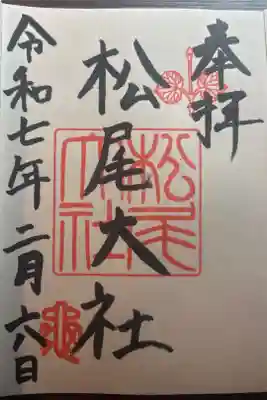 奉拝
松尾大社
松尾大社
令和七年二月六日